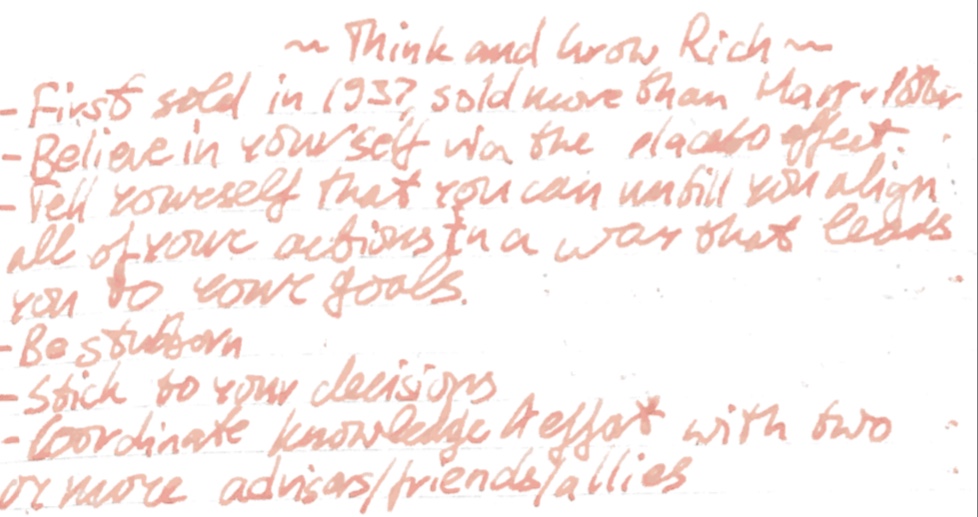 ~ Think and Grow Rich ~
- First sold in 1937, sold more than Harry Potter
- Believe in yourself via the placebo effect.
- Tell yourself that you can untill you align
all of your actions in a way that leads
you to your goals.
- Be stubborn
- Stick to your decisions
- Coordinate knowledge & effort with two
or more advisors/friends/allies